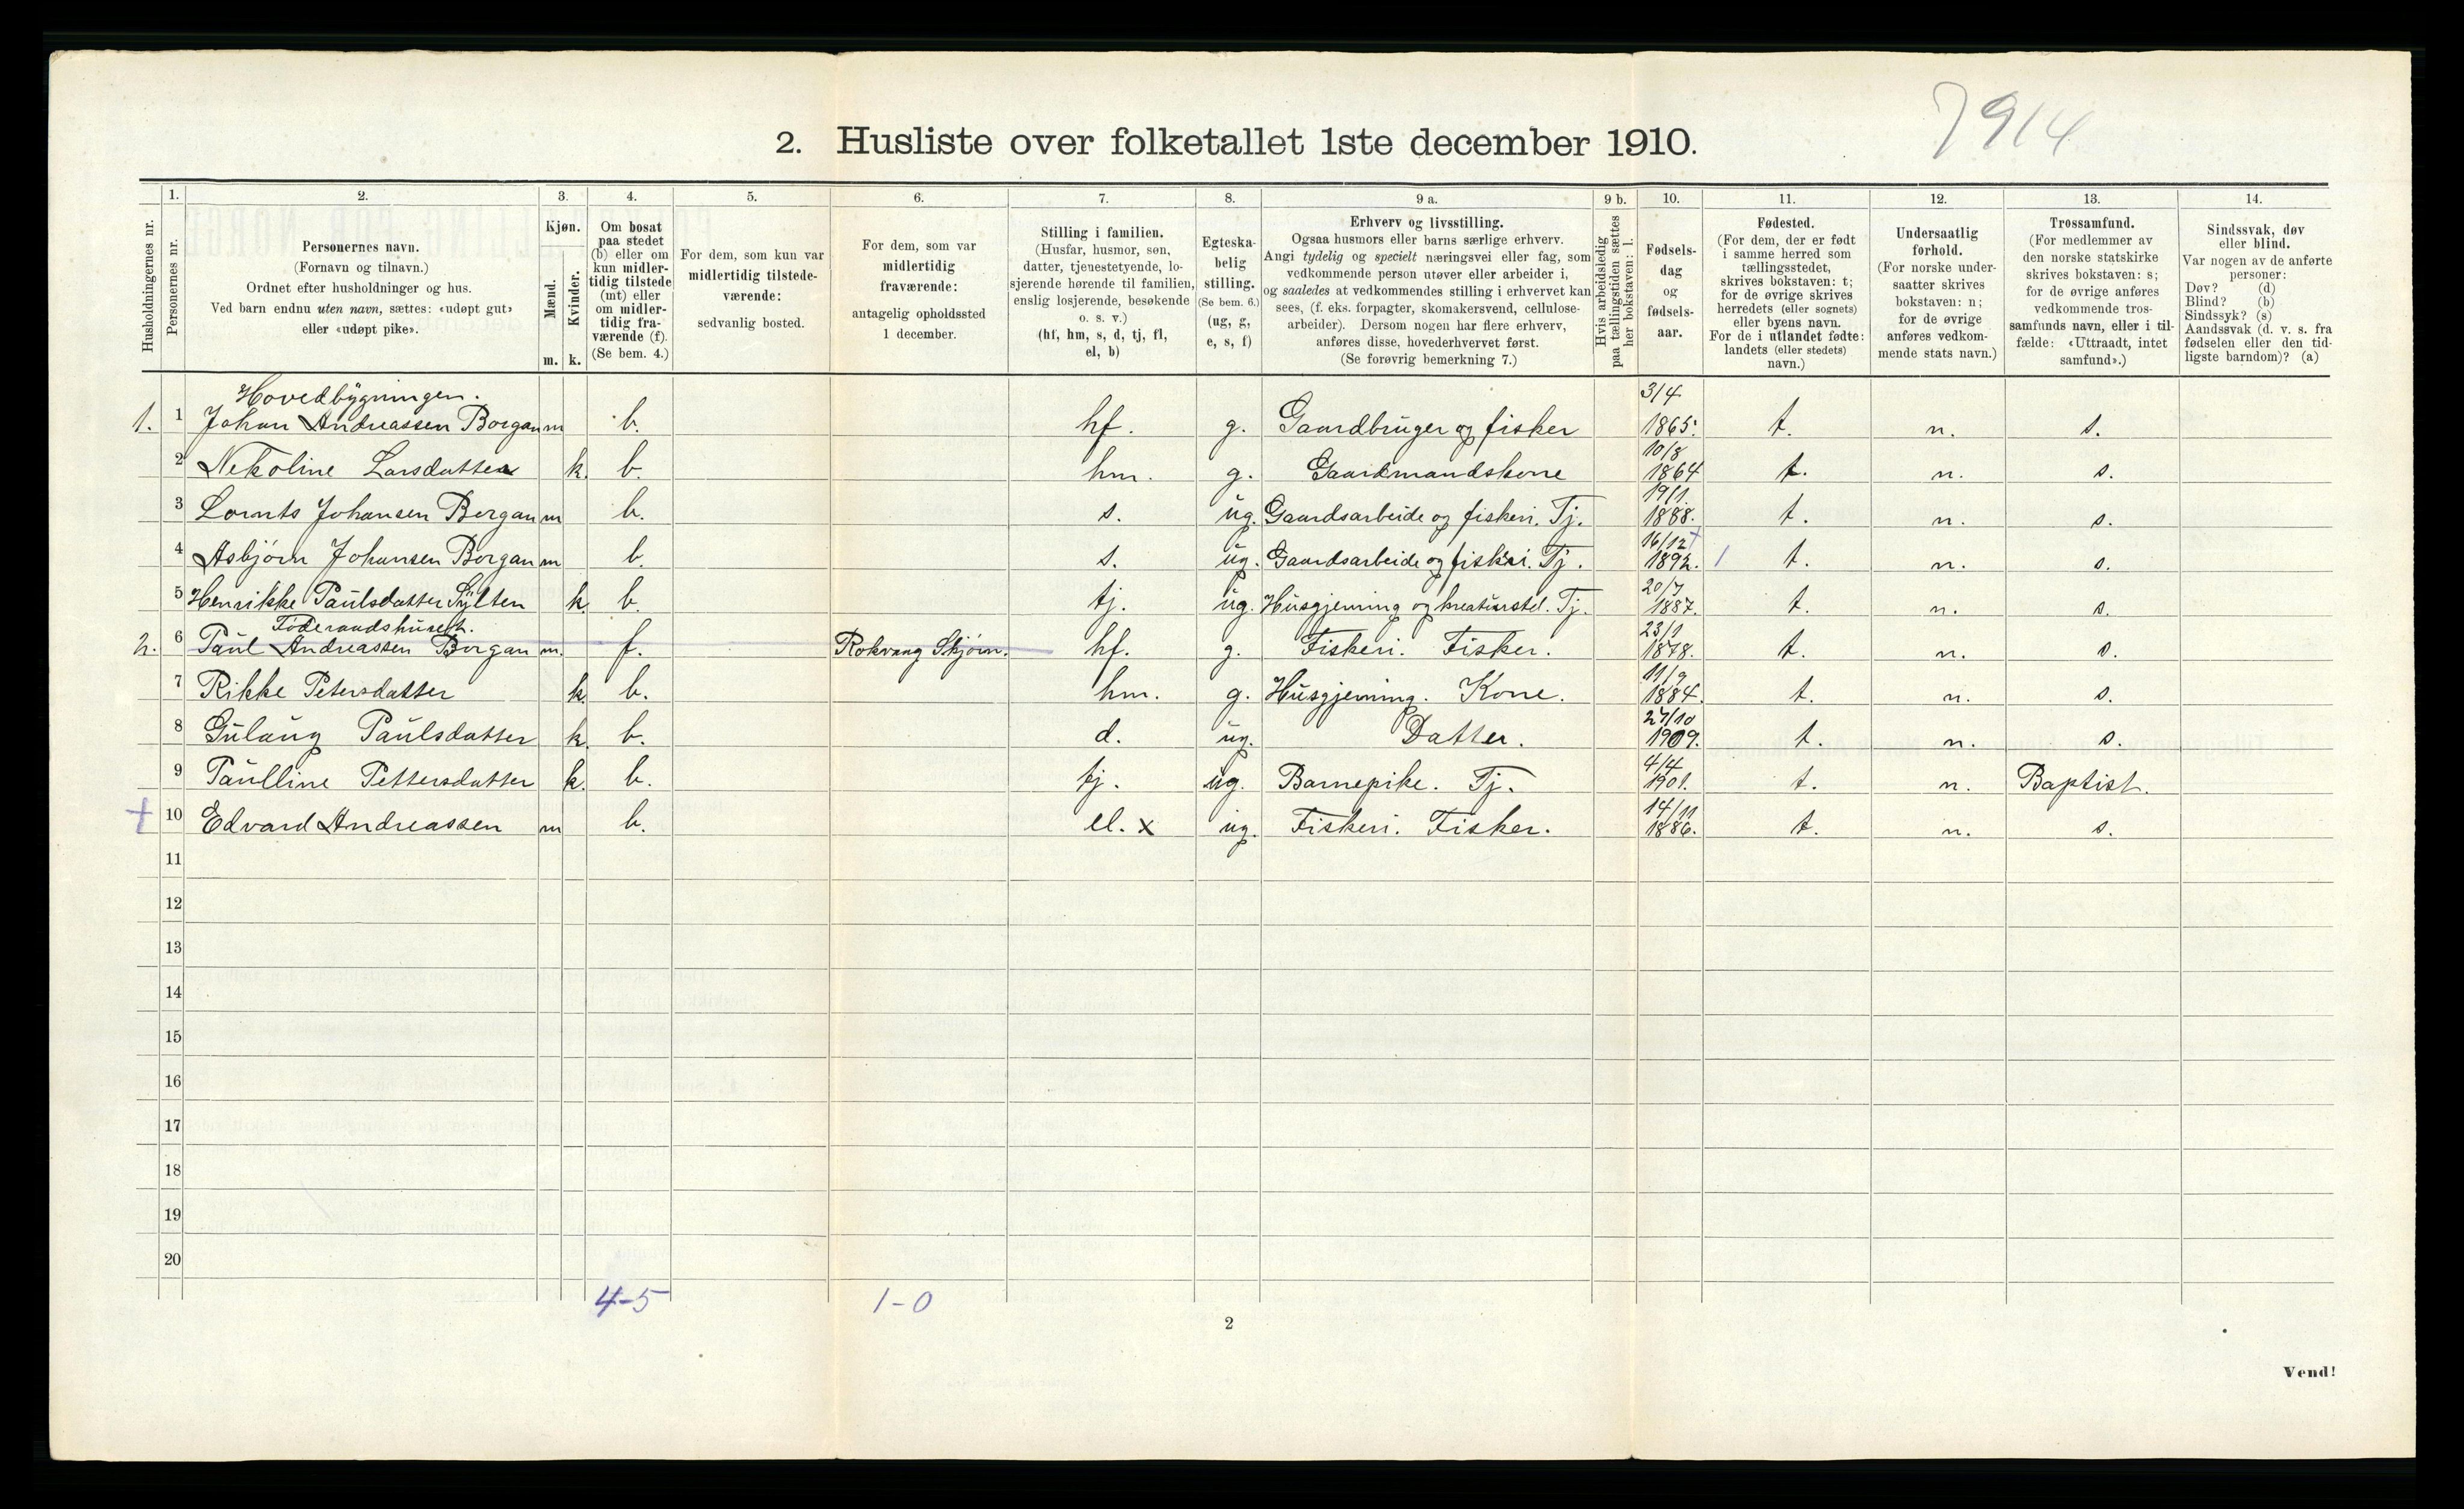 7914
2. Husliste over folketallet 1ste december 1910.
1. 2. 3. 4. 5. 6. 7. 8. 9 a. 9 b. 10. 11. 12. 13. 14.
Husholdningernes nr.
Personernes nr.
Personernes navn.
(Fornavn og tilnavn.)
Ordnet efter husholdninger og hus.
Ved barn endnu uten navn, sættes: «udøpt gut»
eller «udøpt pike».
Kjøn.
Mænd.
m.
Kvinder.
k.
Om bosat
paa stedet
(b) eller om
kun midler-
tidig tilstede
(mt) eller
om midler-
tidig fra-
værende (f).
(Se bem. 4.)
For dem, som kun var
midlertidig tilstede-
værende:
sedvanlig bosted.
For dem, som var
midlertidig
fraværende:
antagelig opholdssted
1 december.
Stilling i familien.
(Husfar, husmor, søn,
datter, tjenestetyende, lo-
sjerende hørende til familien,
enslig losjerende, besøkende
o. s. v.)
(hf, hm, s, d, tj, fl,
el, b)
Egteska-
belig
stilling.
(Se bem. 6.)
(ug, g,
e, s, f)
Erhverv og livsstilling.
Ogsaa husmors eller barns særlige erhverv.
Angi tydelig og specielt næringsvei eller fag, som
vedkommende person utøver eller arbeider i,
og saaledes at vedkommendes stilling i erhvervet kan
sees, (f. eks. forpagter, skomakersvend, cellulose-
arbeider). Dersom nogen har flere erhverv,
anføres disse, hovederhvervet først.
(Se forøvrig bemerkning 7.)
Hvis arbeidsledig
paa tællingstiden sættes
her bokstaven: l.
Fødsels-
dag
og
fødsels-
aar.
Fødested.
(For dem, der er født
i samme herred som
tællingsstedet,
skrives bokstaven: t;
for de øvrige skrives
herredets (eller sognets)
eller byens navn.
For de i utlandet fødte:
landets (eller stedets)
navn.)
Undersaatlig
forhold.
(For norske under-
saatter skrives
bokstaven: n;
for de øvrige
anføres vedkom-
mende stats navn.)
Trossamfund.
(For medlemmer av
den norske statskirke
skrives bokstaven: s;
for de øvrige anføres
vedkommende tros-
samfunds navn, eller i til-
fælde: «Uttraadt, intet
samfund».)
Sindssvak, døv
eller blind.
Var nogen av de anførte
personer:
Døv? (d)
Blind? (b)
Sindssyk? (s)
Aandssvak (d. v. s. fra
fødselen eller den tid-
ligste barndom)? (a)
Hovedbygningen.
1. 1 Johan Andreassen Borgan m b. hf. g. Gaardbruger og fisker 3/4 1865. t. n. s.
2 Nekoline Larsdatter k. b. hm. g. Gaardmandskone 10/8 1864 t. n. s.
3 Lornts Johansen Borgan m b. s. ug. Gaardsarbeide og fiskeri. Tj. 19/1. 1888. t. n. s.
4 Asbjörn Johansen Borgan m b. s. ug. Gaardsarbeide og fiskeri. Tj. 16/12 1892. t. n. s.
5 Henrikke Paulsdatter Sylten k. b. tj. ug. Husgjerning og kreaturstel. Tj. 20/7 1887. t. n. s.
Föderaadshuset.
2. 6 Paul Andreassen Borgan m. f. Rokvang Skjörn. hf. g. Fiskeri. Fisker. 23/1 1878. t. n. s.
7 Rikke Petersdatter k. b. hm. g. Husgjerning. Kone. 11/9 1884. t. n. s.
8 Gulaug Paulsdatter k. b. d. ug. Datter. 27/10 1909. t. n. s.
9 Paulline Pettersdatter k. b. tj. ug. Barnepike. Tj. 4/4 1901. t. n. Baptist.
10 Edvard Andreassen m b. el. x ug. Fiskeri. Fisker. 14/11 1886. t. n. s.
11
12
13
14
15
16
17
18
19
20
4-5 1-0
2
Vend!